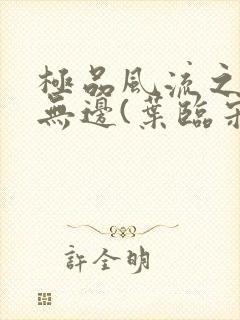 極品風流之
無邊(葉臨
許全明